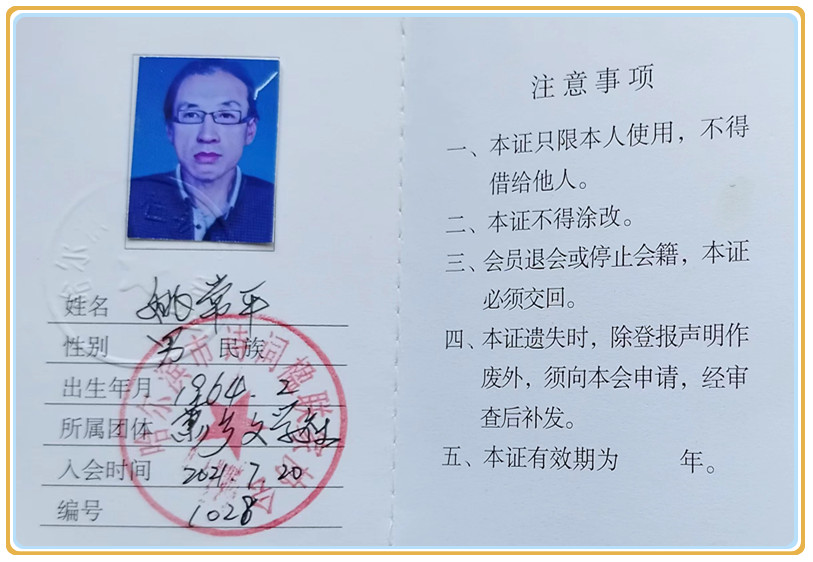 姓名 姚常平
性别 男 民族
出生年月 1964.2
所属团体 萧乡文学社
入会时间 2021.7.20
编号 1028
哈尔滨市诗词楹联家协会
注意事项
一、本证只限本人使用，不得
借给他人。
二、本证不得涂改。
三、会员退会或停止会籍，本证
必须交回。
四、本证遗失时，除登报声明作
废外，须向本会申请，经审
查后补发。
五、本证有效期为 年。